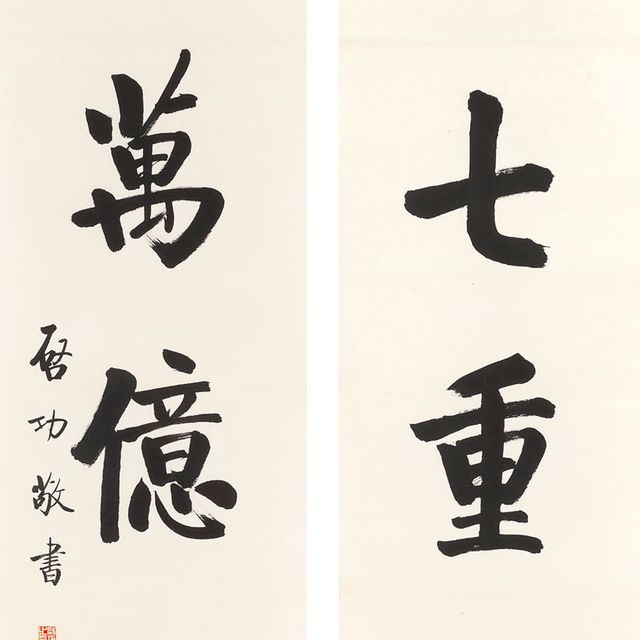 七重
萬億
啓功敬書